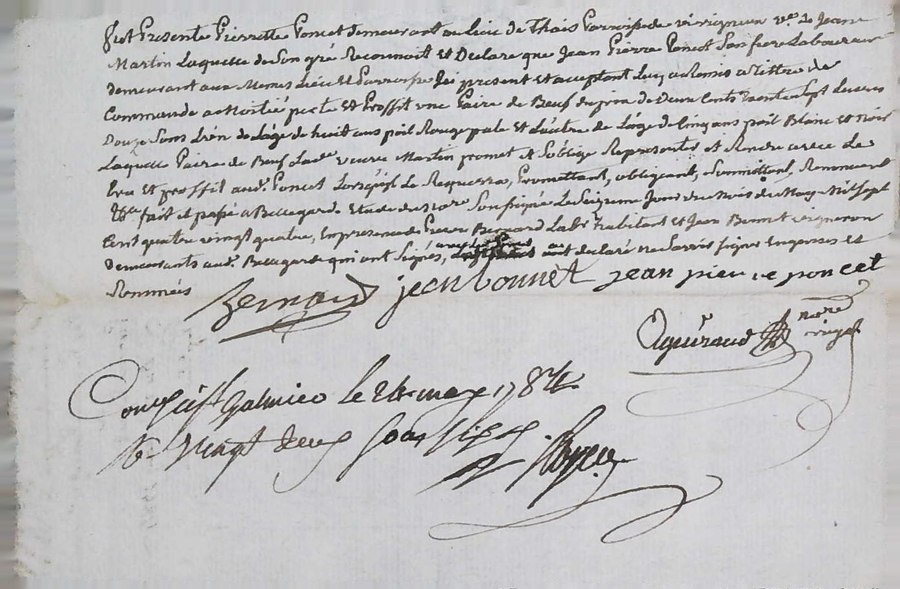 fut Presente Pierrette Poncet demeurant au lieu de Thais Parroisse de virigneux v.e de Jeane
Martin Laquelle de Son gré Reconnoit et Declare que Jean Pierre Poncet Son frere Laboureur
demeurant aux Memes Lieu et Parroisse Icy present et aceptant Luy a remis a Tittre de
Commande a Moitié perte et Proffit une Paire de Beuf du prix de Deux Cents trente Sept Livres
Douze Sous L'un de L'age de huit ans poil Rouge pale et L'autre de L'age de Cinq ans poil Blanc et Noir
Laquelle Paire de Beuf Lad.e veuve Martin promet et S'oblige Representer et Rendre avec Le
Cru et proffit aud. Poncet Lorsqu'il Le Requerra, Promettant, obligeant, Soumettant, Renonceant
fait et passé a Bellegarde Etude du No.re Soussigné Le Seizieme Jour du Mois de May Mil Sept
Cent quatre vingt quatre, En presence de Pierre Bernard Lab.r habitant et Jean Bonnet vigneron
demeurants aud. Bellegarde qui ont Signés, ont declaré ne Savoir Signer Enquises et
Sommées
Bernard jean bonnet jean pierre poncet
no.re
royal
le 24 may 1784
vingt deux Sous